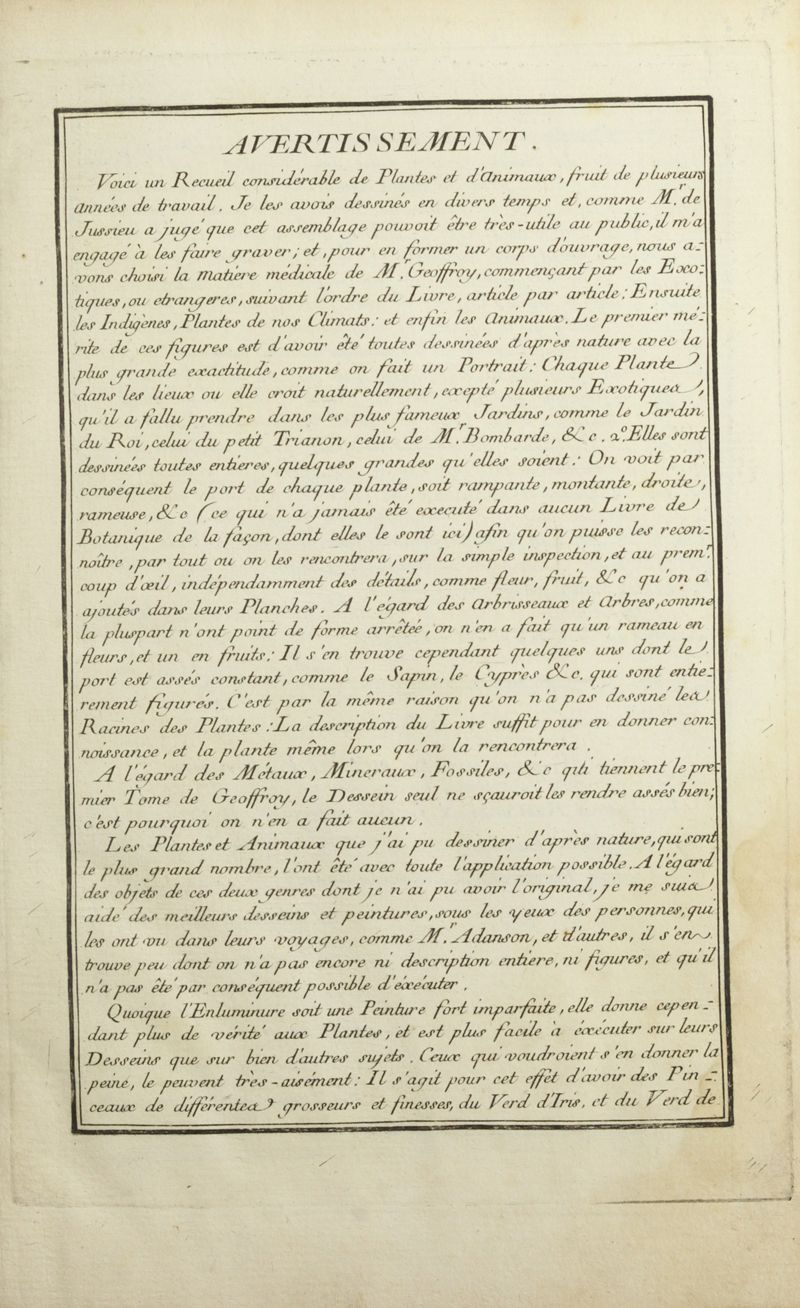 AVERTISSEMENT.
Voici un Recueil considérable de Plantes et d'Animaux, fruit de plusieurs
années de travail. Je les avois dessinés en divers temps et, comme M.r de
Jussieu a jugé que cet assemblage pouvoit être très-utile au public, il m'a
engagé à les faire graver; et, pour en former un corps d'ouvrage, nous a-
vons choisi la matiere médicale de M.r Geoffroy, commençant par les Exo-
tiques, ou etrangeres, suivant l'ordre du Livre, article par article; Ensuite
les Indigènes, Plantes de nos Climats: et enfin les Animaux. Le premier mé-
rite de ces figures est d'avoir été toutes dessinées d'après nature avec la
plus grande exactitude, comme on fait un Portrait: Chaque Plante
dans les lieux ou elle croit naturellement, excepté plusieurs Exotiques,
qu'il a fallu prendre dans les plus fameux Jardins, comme le Jardin
du Roi, celui du petit Trianon, celui de M.r Bombarde, &c. 2.° Elles sont
dessinées toutes entieres, quelques grandes qu'elles soient: On voit par
conséquent le port de chaque plante, soit rampante, montante, droite,
rameuse, &c (ce qui n'a jamais été executé dans aucun Livre de
Botanique de la façon, dont elles le sont ici) afin qu'on puisse les recon-
noître, par tout ou on les rencontrera, sur la simple inspection, et au prem.r
coup d'œil, indépendamment des détails, comme fleur, fruit, &c qu'on a
ajoutés dans leurs Planches. A l'égard des Arbrisseaux et Arbres, comme
la pluspart n'ont point de forme arrêtée, on n'en a fait qu'un rameau en
fleurs, et un en fruits: Il s'en trouve cependant quelques uns dont le
port est assés constant, comme le Sapin, le Cyprès &c. qui sont entie-
rement figurés. C'est par la même raison qu'on n'a pas dessiné les
Racines des Plantes: La description du Livre suffit pour en donner con-
noissance, et la plante même lors qu'on la rencontrera.
A l'égard des Métaux, Mineraux, Fossiles, &c qui tiennent le pre-
mier Tome de Geoffroy, le Dessein seul ne sçauroit les rendre assés bien;
c'est pourquoi on n'en a fait aucun.
Les Plantes et Animaux que j'ai pu dessiner d'après nature, qui sont
le plus grand nombre, l'ont été avec toute l'application possible. A l'égard
des objets de ces deux genres dont je n'ai pu avoir l'original, je me suis
aidé des meilleurs desseins et peintures, sous les yeux des personnes, qui
les ont vu dans leurs voyages, comme M.r Adanson, et d'autres, il s'en
trouve peu dont on n'a pas encore ni description entiere, ni figures, et qu'il
n'a pas été par conséquent possible d'éxécuter.
Quoique l'Enluminure soit une Peinture fort imparfaite, elle donne cepen-
dant plus de vérité aux Plantes, et est plus facile à éxécuter sur leurs
Desseins que sur bien d'autres sujets. Ceux qui voudroient s'en donner la
peine, le peuvent très-aisément: Il s'agit pour cet effet d'avoir des Pin-
ceaux de différentes grosseurs et finesses, du Verd d'Iris, et du Verd de